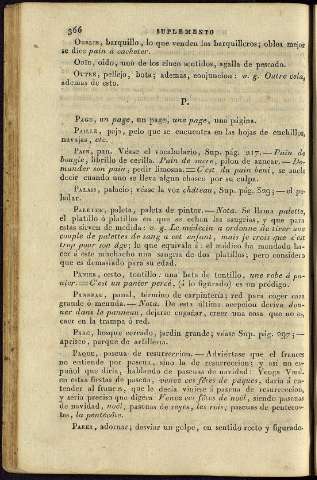 366 SUPLEMENTO
OUBLIE, barquillo, lo que venden los barquilleros; oblea mejor
se dice pain à cacheter.
OUÏE, oido, uno de los cinco sentidos, agalla de pescado.
OUTRE, pellejo, bota; ademas, conjuncion: v. g. Outre cela,
ademas de esto.
P.
PAGE, un page, un page, une page, una página.
PAILLE, paja, pelo que se encuentra en las hojas de cuchillos,
navajas, etc.
PAIN, pan. Véase el vocabulario, Sup. pág. 217. — Pain de
bougie, librillo de cerilla. Pain de sucre, pilon de azucar. — De-
mander son pain, pedir limosna. = C'est du pain beni, se suele
decir cuando uno se lleva algun chasco por su culpa.
PALAIS, palacio; véase la voz château, Sup. pág. 329; — el pa-
ladar.
PALETTE, paleta, paleta de pintor. — Nota. Se llama palette,
el platillo ó platillos en que se echan las sangrias, y que para
estas sirven de medida: v. g. Le médecin a ordonné de tirer une
couple de palettes de sang à cet enfant, mais je crois que c'est
trop pour son âge; lo que equivale á: el médico ha mandado ha-
cer á este muchacho una sangria de dos platillos; pero considero
que es demasiado para su edad.
PANIER, cesto, tontillo: una bata de tontillo, une robe à pa-
nier. = C'est un panier percé, (á lo figurado) es un pródigo.
PANNEAU, panal, término de carpintería; red para coger caza
grande ó menuda. — Nota. De esta última acepcion deriva don-
ner dans le panneau, dejarse engañar, creer una cosa que no es,
caer en la trampa ó red.
PARC, bosque cercado, jardin grande; véase Sup. pág. 297; —
aprisco, parque de artilleria.
PAQUE, pascua de resurreccion. — Adviértase que el frances
no entiende por pascua, sino la de resurreccion; y asi un es-
pañol que diria, hablando de pascuas de navidad: Venga Vmd.
en estas fiestas de pascua, venez ces fêtes de pâques, daria á en-
tender al frances, que le decia viniese á pascua de resurreccion,
y seria preciso que dijera Venez ces fêtes de noël, siendo pascuas
de navidad, noël, pascuas de reyes, les rois, pascuas de pentecos-
tes, la pentecôte.
PARER, adornar; desviar un golpe, en sentido recto y figurado.